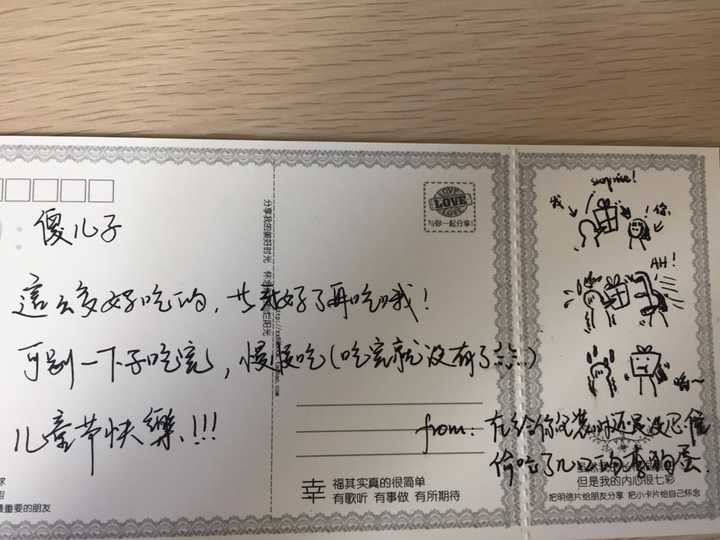 surprise!
我
你
AH!
LOVE
LOVE
LOVE
与你一起分享!
傻儿子
分享我的美好时光
這么多好吃的,
好了再吃哦!
可别一下子吃完, 慢慢吃(吃完就没有了
儿童节快樂!!!
from: 在给你包装时还是没忍住
偷吃了几口的
幸 福其实真的很简单
有歌听 有事做 有所期待
但是我的内心很七彩
把明信片给朋友分享 把小卡片给自己怀念
重要的朋友